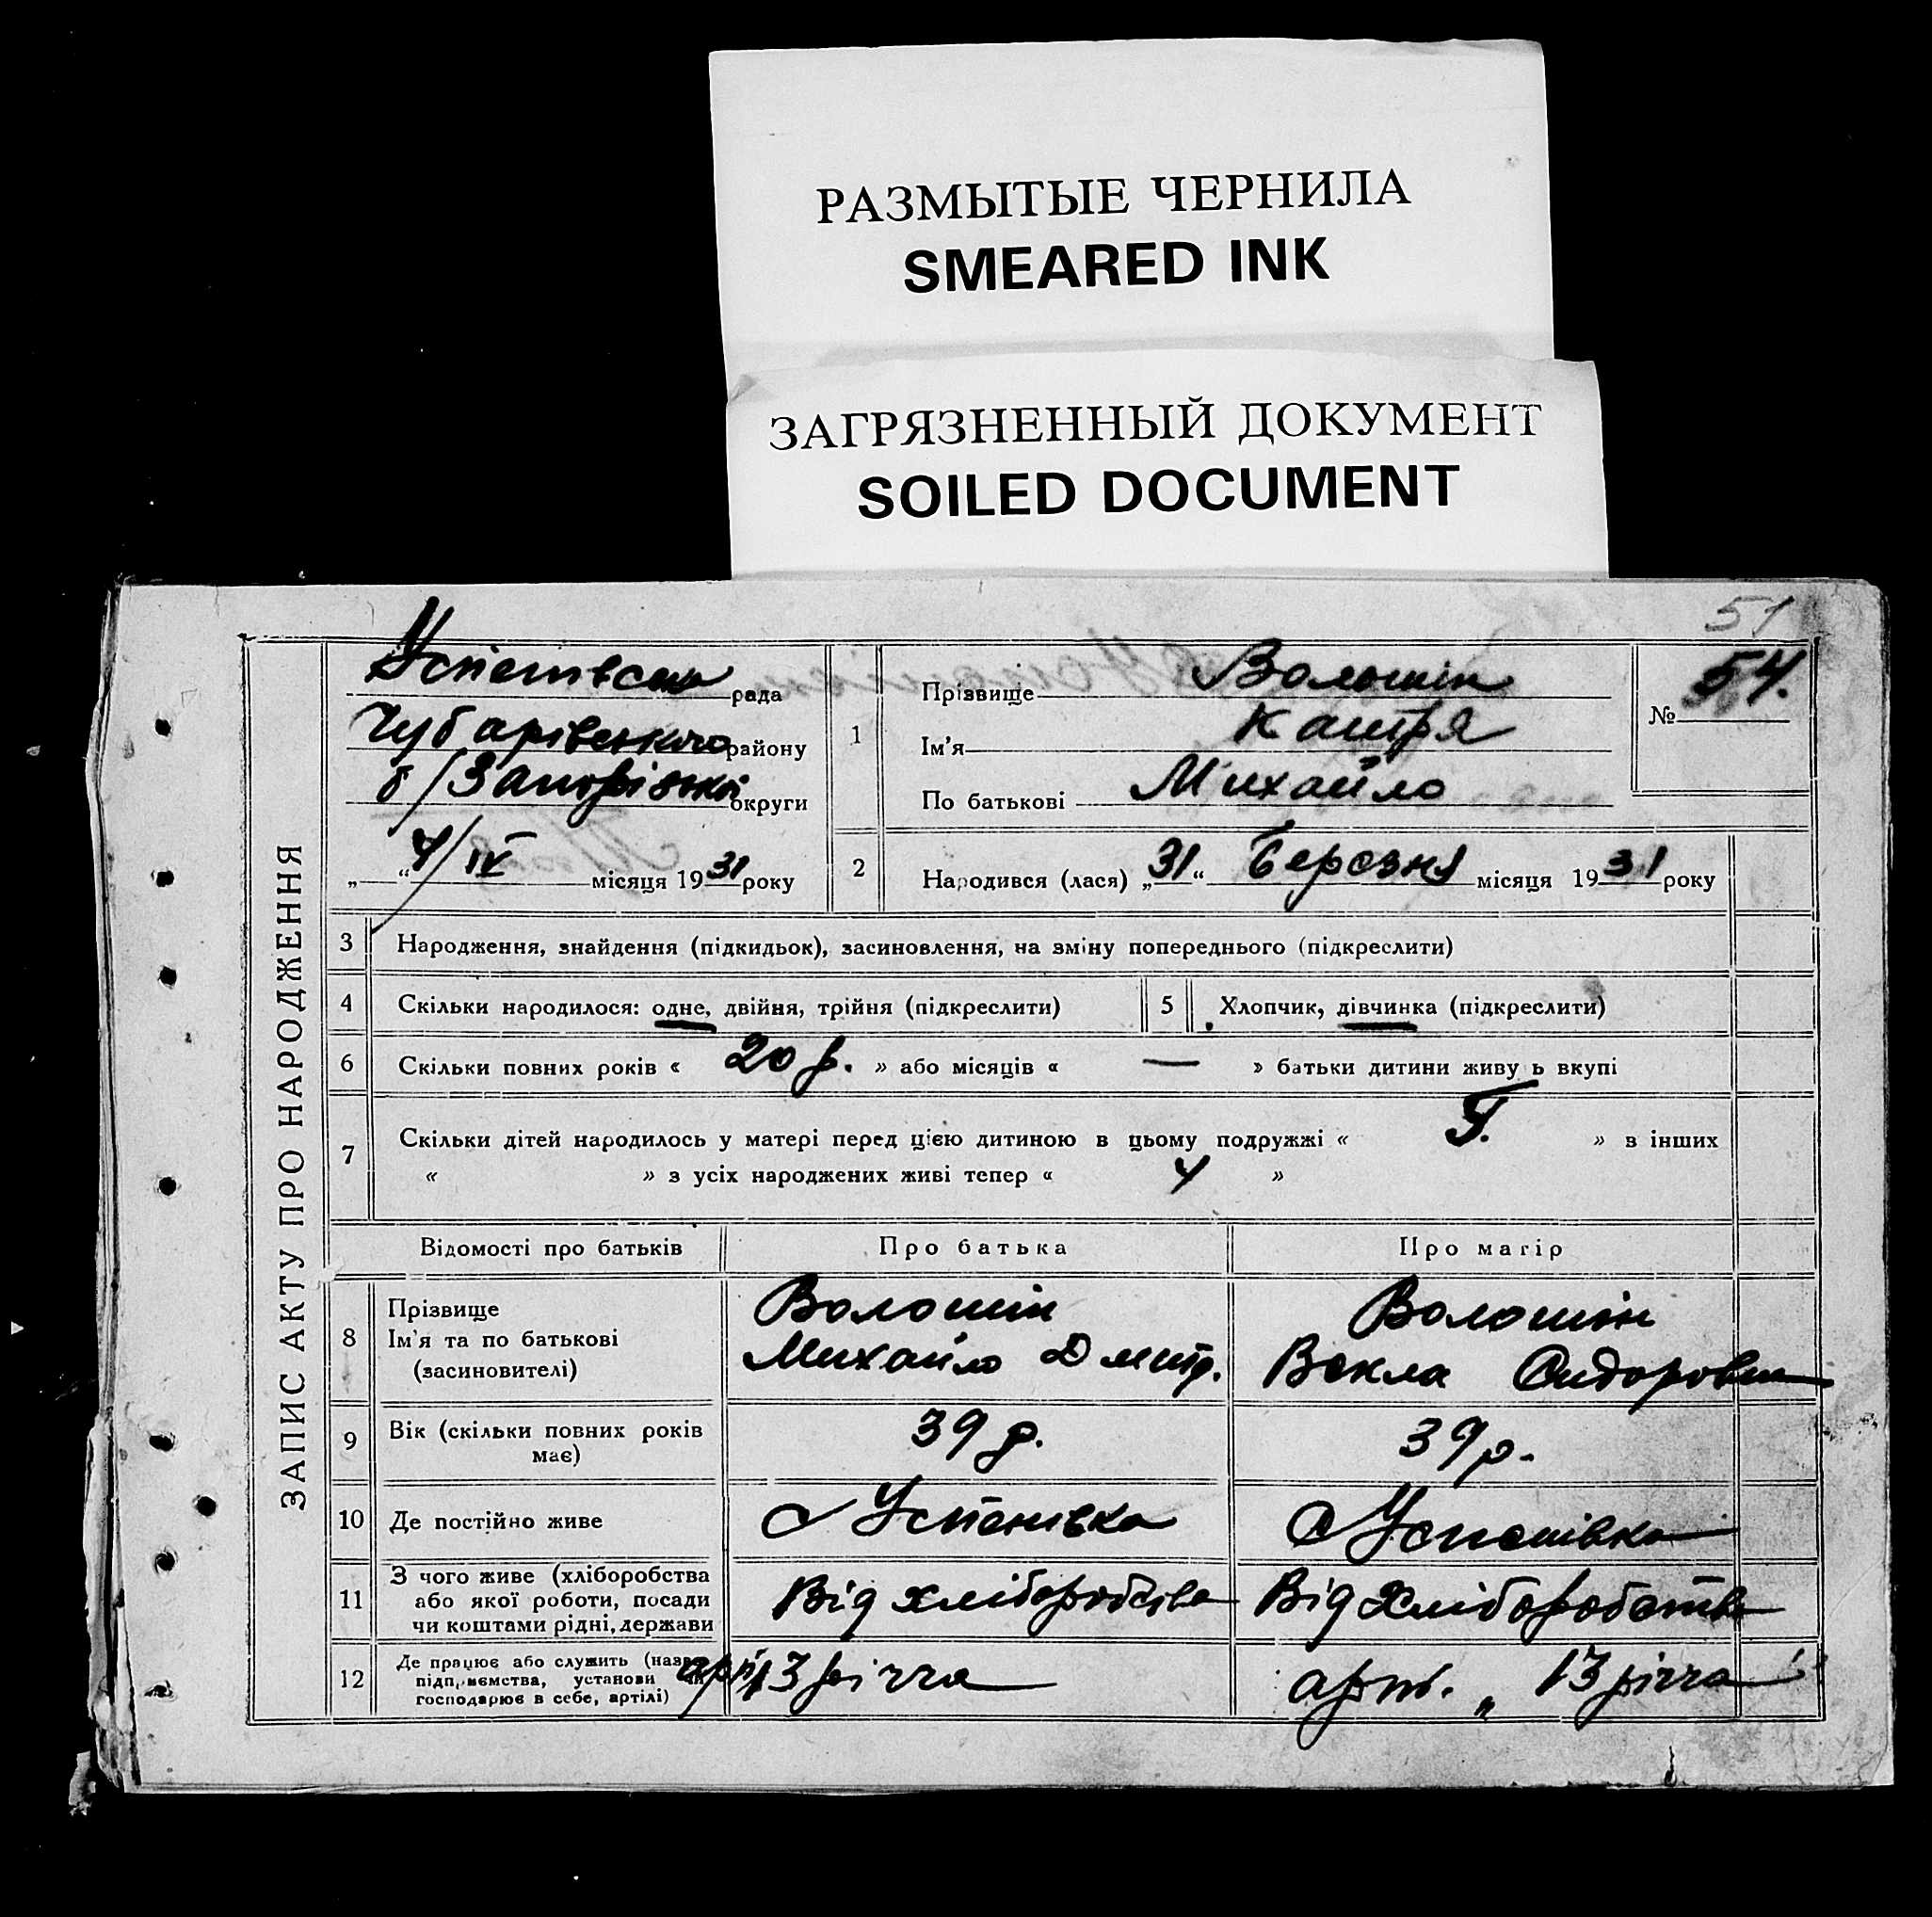 РАЗМЫТЫЕ ЧЕРНИЛА
SMEARED INK
ЗАГРЯЗНЕННЫЙ ДОКУМЕНТ
SOILED DOCUMENT
51
ЗАПИС АКТУ ПРО НАРОДЖЕННЯ
Успенівська рада
Чубарівського району
б/Запорізької округи
„ “ 4/IV місяця 1931 року
1
Прізвище Волошін
Ім'я Катря
По батькові Михайло
№ 54.
2 Народився (лася) „31“ Березня місяця 1931 року
3 Народження, знайдення (підкидьок), засиновлення, на зміну попереднього (підкреслити)
4 Скільки народилося: одне, двійня, трійня (підкреслити) 5 Хлопчик, дівчинка (підкреслити)
6 Скільки повних років « 20 р. » або місяців « — » батьки дитини живу ь вкупі
7 Скільки дітей народилось у матері перед цією дитиною в цьому подружжі « » в інших
« » з усіх народжених живі тепер « 4 »
Відомості про батьків Про батька Про матір
8 Прізвище Волошін Волошін
Ім'я та по батькові Михайло Дмитр. Векла Сидоровна
(засиновителі)
9 Вік (скільки повних років має) 39 р. 39 р.
10 Де постійно живе с Успенівка с Успенівка
11 З чого живе (хліборобства або якої роботи, посади чи коштами рідні, держави Від хліборобства Від хліборобства
12 Де працює або служить (назва підприємства, установи чи господарює в себе, артілі) арт, 13 річча арт. „ 13 річча "